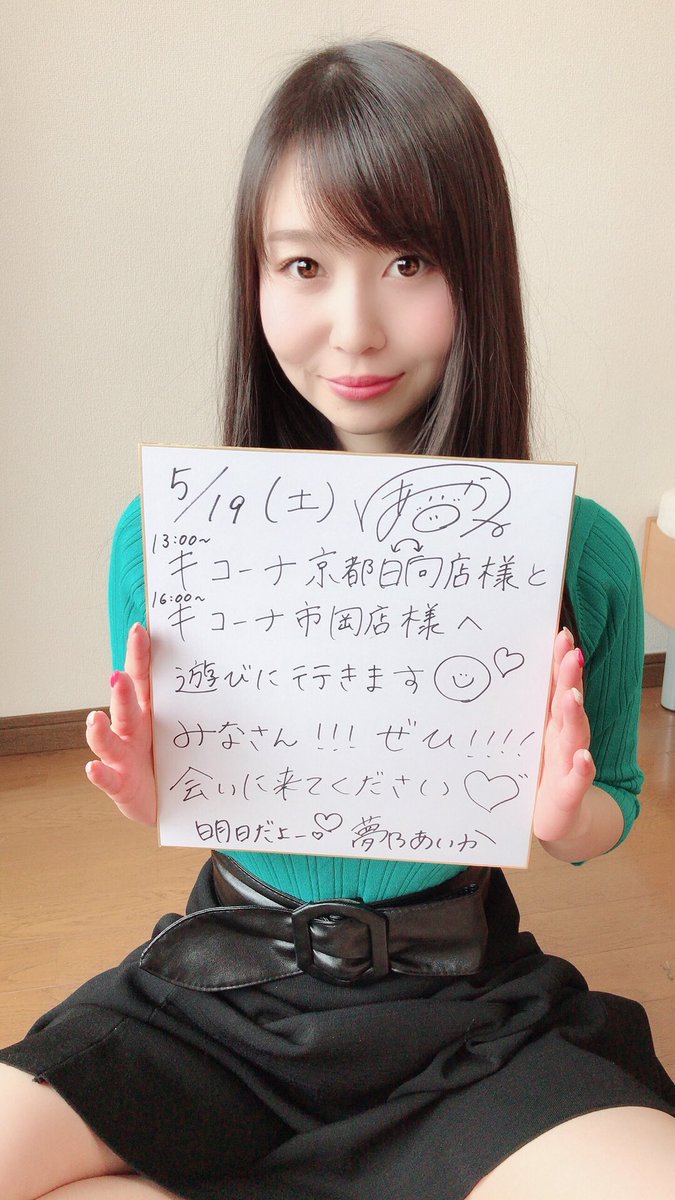 5/19(土) あいか
13:00~
キコーナ京都日向店様と
16:00~
キコーナ市岡店様へ
遊びに行きます
みなさん!!! ぜひ!!!!
会いに来てください
明日だよー 夢乃あいか